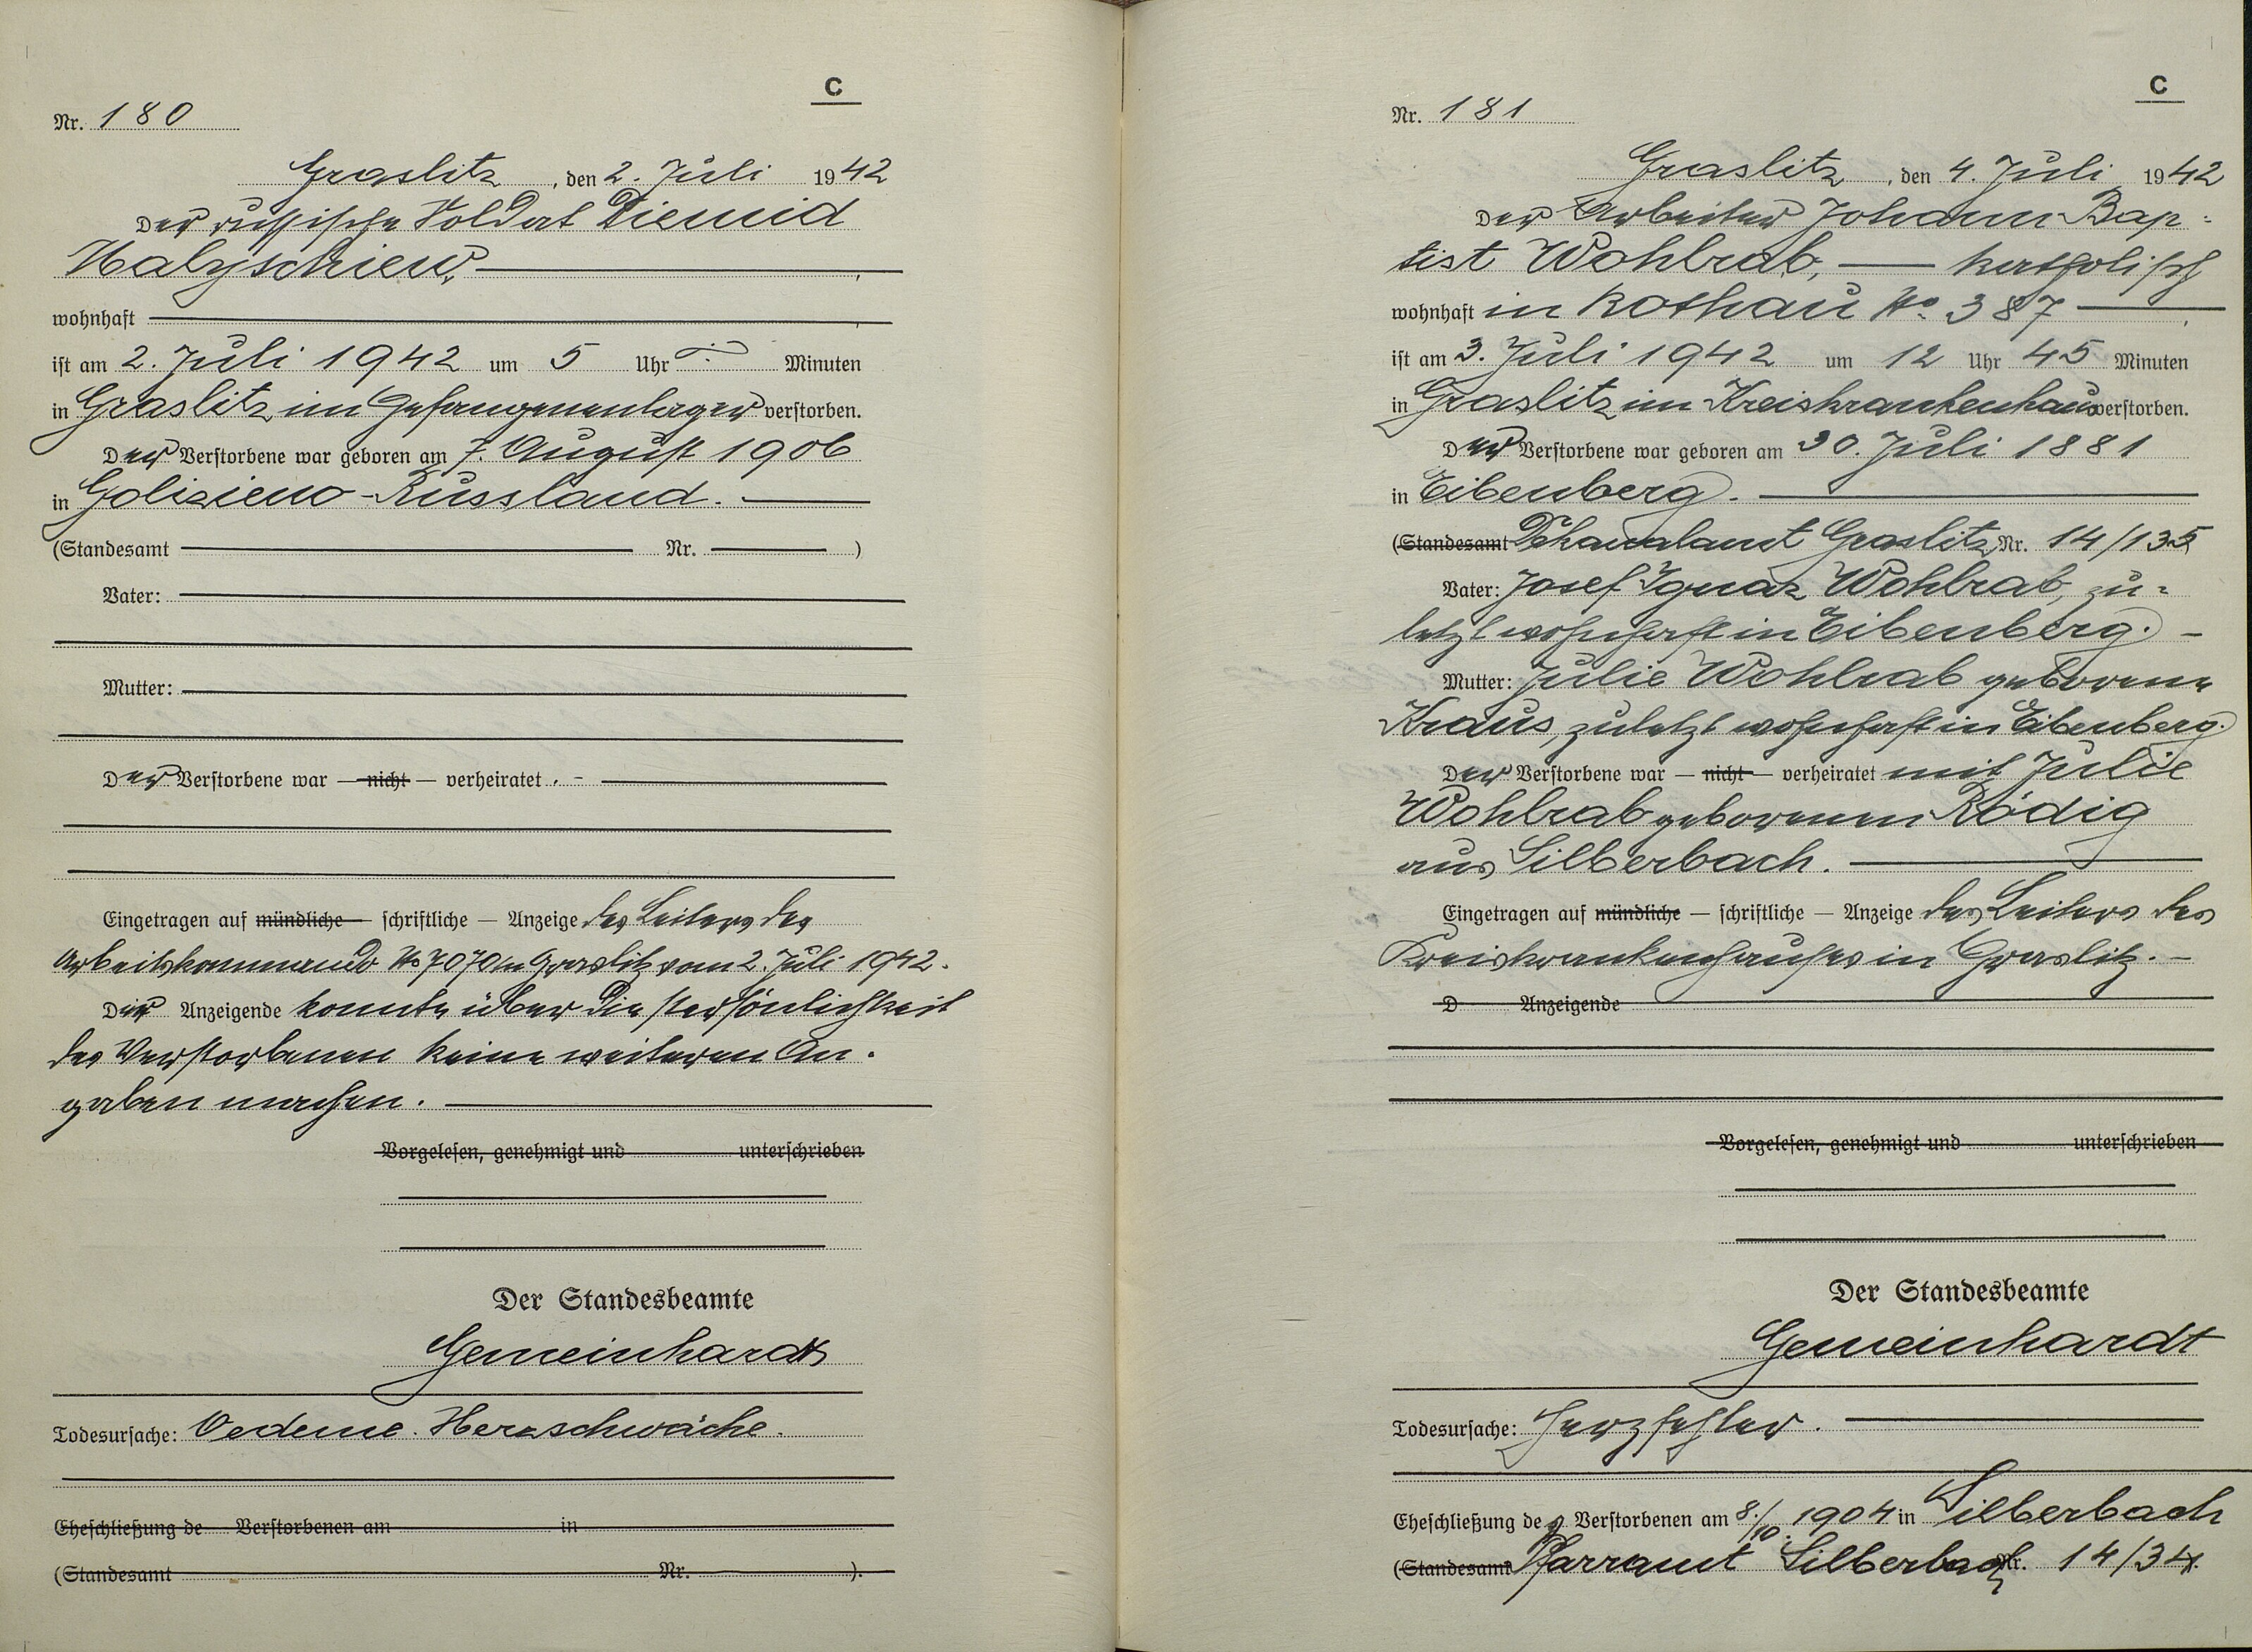 C
Nr. 180
Graslitz, den 2. Juli 1942
Der russische Soldat Diemid
Malyschiew,
wohnhaft
ist am 2. Juli 1942 um 5 Uhr Minuten
in Graslitz im Gefangenenlager verstorben.
Der Verstorbene war geboren am 7. August 1906
in Golizieno-Russland.
(Standesamt Nr. )
Vater:
Mutter:
Der Verstorbene war — nicht — verheiratet. -
Eingetragen auf mündliche — schriftliche — Anzeige des Leiters des
Arbeitskommando No 7070 in Graslitz vom 2. Juli 1942.
Der Anzeigende konnte über die Persönlichkeit
des Verstorbenen keine weiteren An-
gaben machen.
Vorgelesen, genehmigt und unterschrieben
Der Standesbeamte
Gemeinhardt
Todesursache: Oedeme. Herzschwäche.
Eheschließung de Verstorbenen am in
(Standesamt Nr. ).
C
Nr. 181
Graslitz, den 4. Juli 1942
Der Arbeiter Johann Bap-
tist Wohlrab, — katholisch
wohnhaft in Rothau No. 387
ist am 3. Juli 1942 um 12 Uhr 45 Minuten
in Graslitz im Kreiskrankenhaus verstorben.
Der Verstorbene war geboren am 30. Juli 1881
in Eibenberg.
(Standesamt Dekanalamt Graslitz Nr. 14/135
Vater: Josef Ignaz Wohlrab, zu-
letzt wohnhaft in Eibenberg. -
Mutter: Julie Wohlrab geborene
Kraus, zuletzt wohnhaft in Eibenberg.
Der Verstorbene war — nicht — verheiratet mit Julie
Wohlrab geborenen Rödig
aus Silberbach.
Eingetragen auf mündliche — schriftliche — Anzeige des Leiters des
Kreiskrankenhauses in Graslitz. -
D Anzeigende
Vorgelesen, genehmigt und unterschrieben
Der Standesbeamte
Gemeinhardt
Todesursache: Herzfehler.
Eheschließung des Verstorbenen am 8./10. 1904 in Silberbach
(Standesamt Pfarramt Silberbach Nr. 14/34.